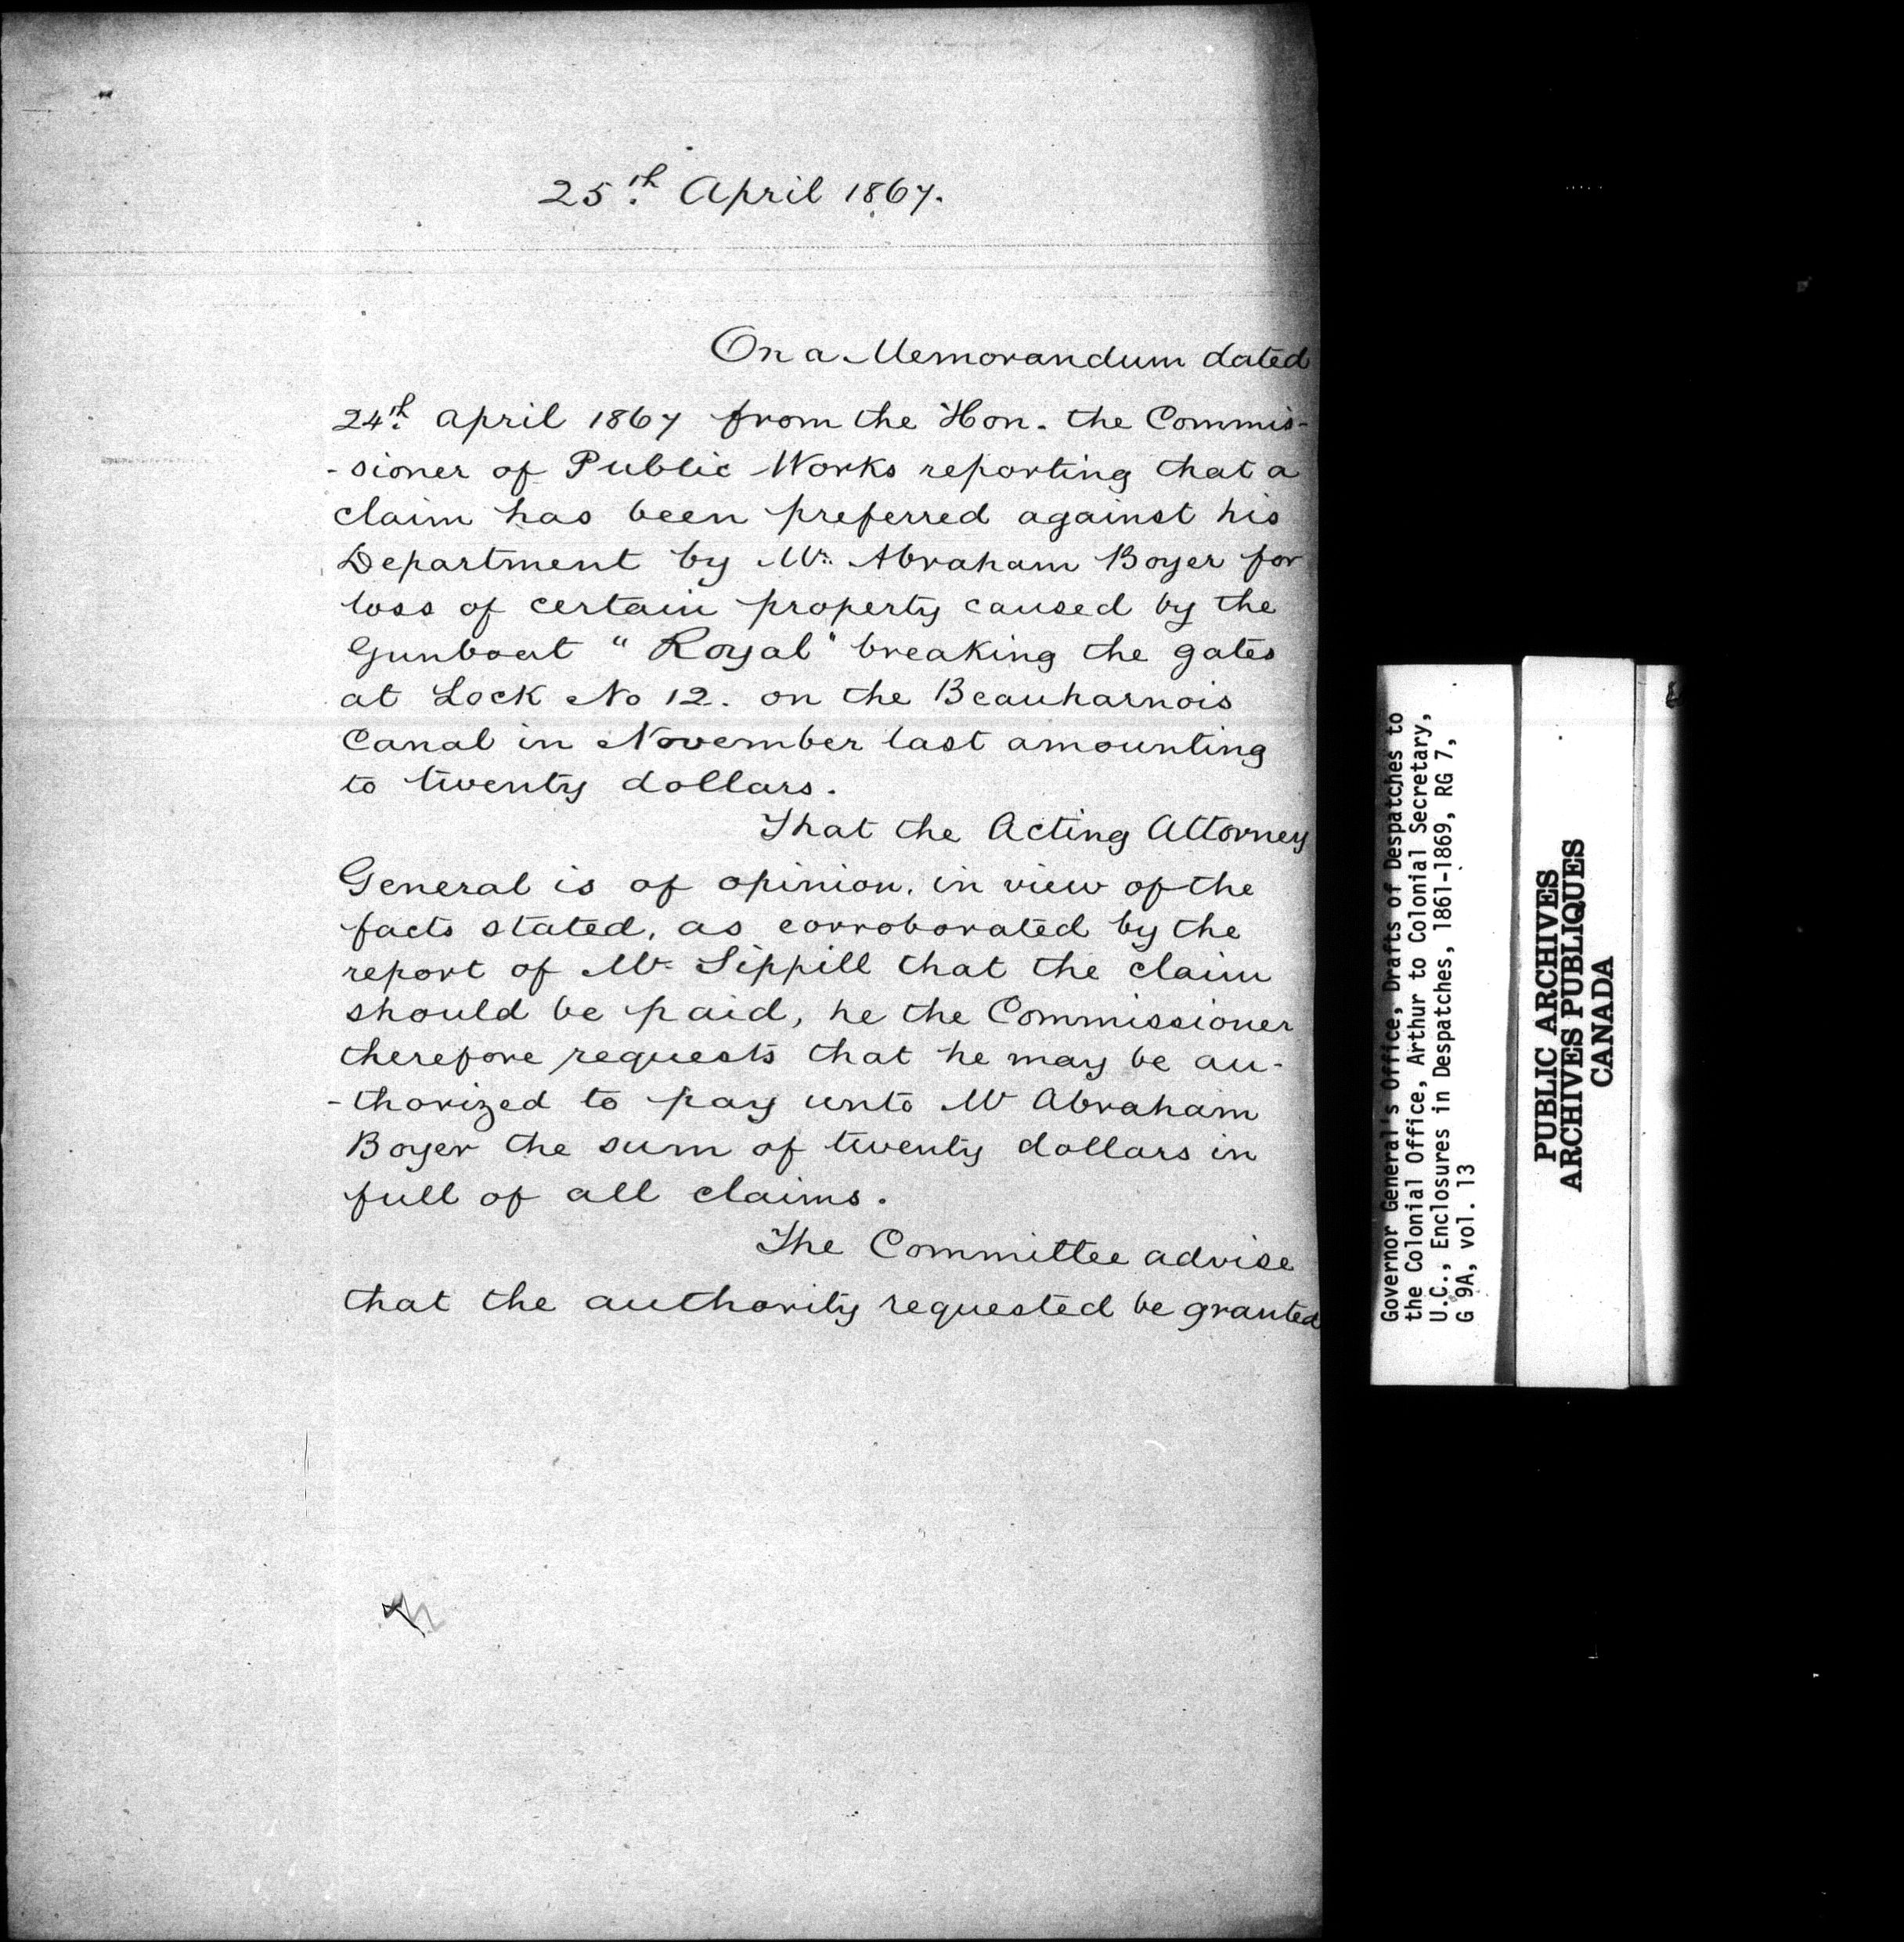 25th April 1867.
On a Memorandum dated
24th April 1867 from the Hon. the Commis-
-sioner of Public Works reporting that a
claim has been preferred against his
Department by Mr. Abraham Boyer for
loss of certain property caused by the
Gunboat "Royal" breaking the gates
at Lock No 12. on the Beauharnois
Canal in November last amounting
to twenty dollars.
That the Acting Attorney
General is of opinion, in view of the
facts stated, as corroborated by the
report of Mr Sippill that the claim
should be paid, he the Commissioner
therefore requests that he may be au-
-thorized to pay unto Mr Abraham
Boyer the sum of twenty dollars in
full of all claims.
The Committee advise
that the authority requested be granted
Governor General's Office, Drafts of Despatches to
the Colonial Office, Arthur to Colonial Secretary,
U.C., Enclosures in Despatches, 1861-1869, RG 7,
G 9A, vol. 13
PUBLIC ARCHIVES
ARCHIVES PUBLIQUES
CANADA